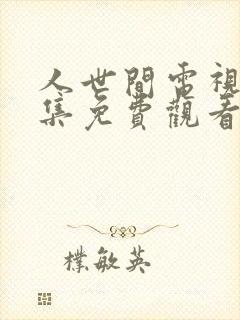 人世間電視
集免費觀看
樸敏英